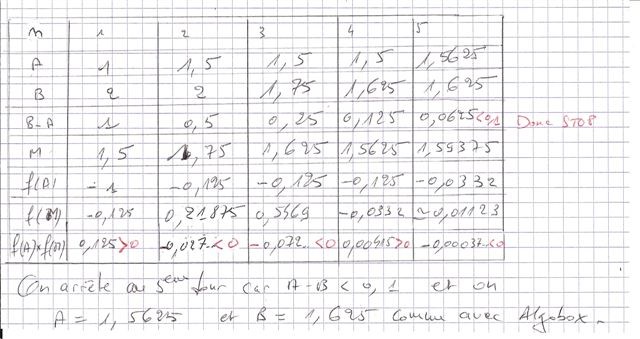 n 1 2 3 4 5
A 1 1,5 1,5 1,5 1,5625
B 2 2 1,75 1,625 1,625
B-A 1 0,5 0,25 0,125 0,0625<0,1 Donc STOP
M 1,5 1,75 1,625 1,5625 1,59375
f(A) -1 -0,125 -0,125 -0,125 -0,0332
f(M) -0,125 0,21875 -0,0332 ≈0,01123
f(A)×f(M) 0,125>0 -0,027<0 -0,072<0 0,00415>0 -0,00037<0
On arrête au 5eme tour car A-B<0,1 et on
A = 1,5625 et B = 1,625 comme avec Algobox.